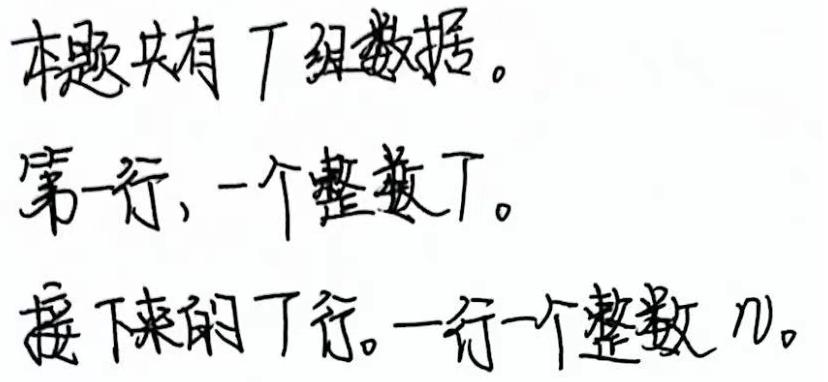 本题共有T组数据。
第一行、一个整数T。
接下来的T行。一行一个整数n。